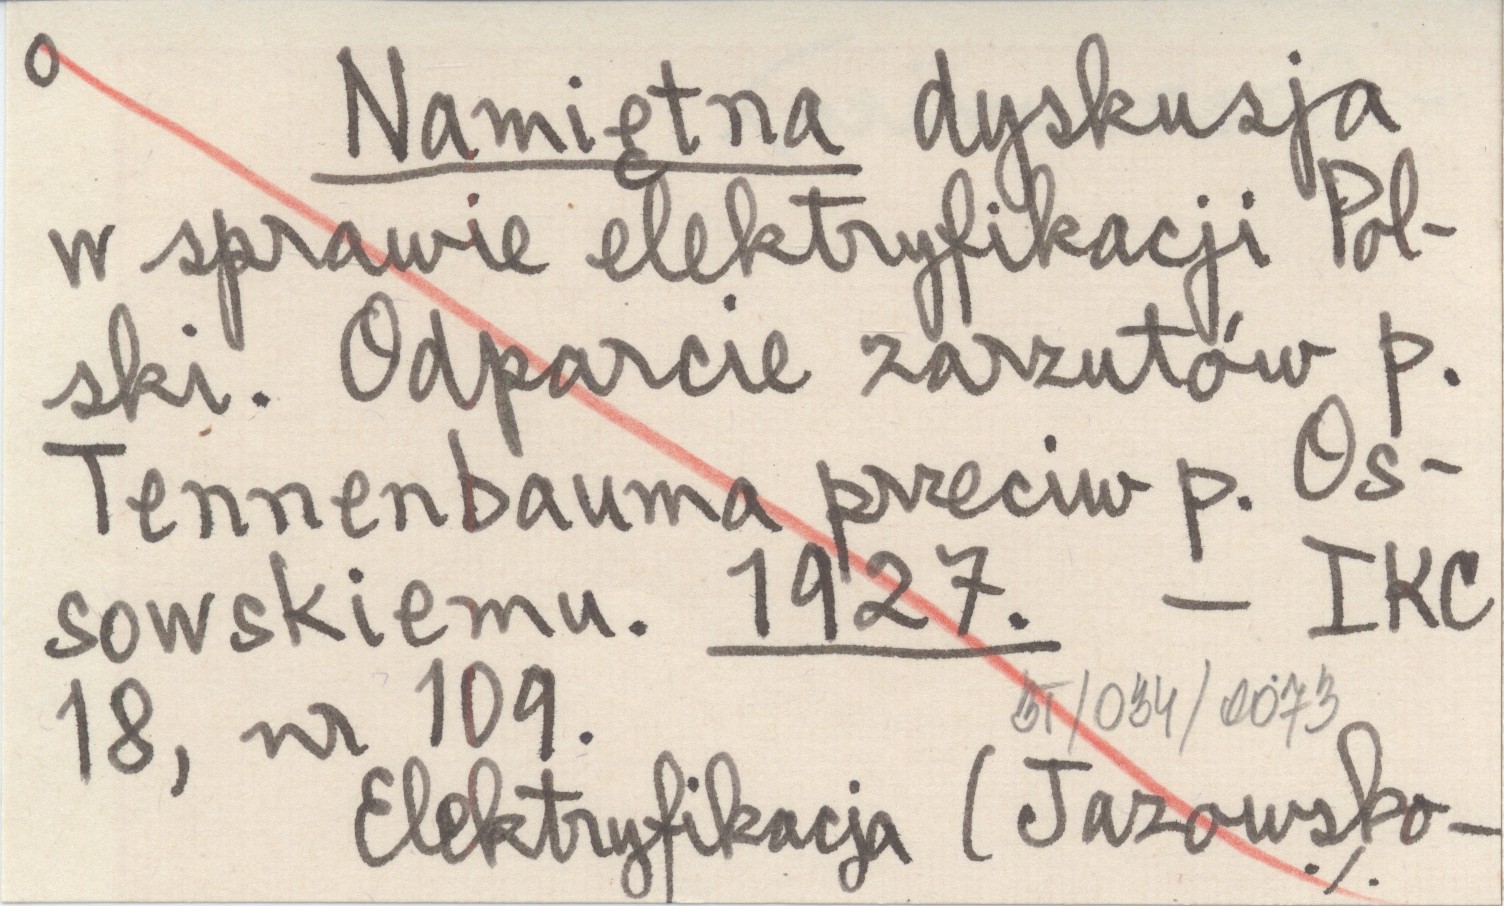 o Namiętna dyskusja
w sprawie elektryfikacji Pol-
ski. Odparcie zarzutów p.
Tennenbauma przeciw p. Os-
sowskiemu. 1927. — IKC
18, nr 109.
/034/
Elektryfikacja (Jazowsko-
./.